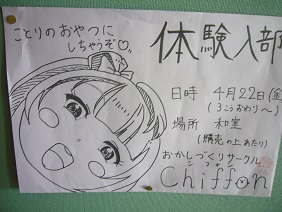 ことりのおやつに
しちゃうぞ♡。
体験入部
日時 4月22日(金
(3こうおわり〜)
場所 和室
(購売の上あたり)
おかしづくりサークル
シフォン
Chiffon